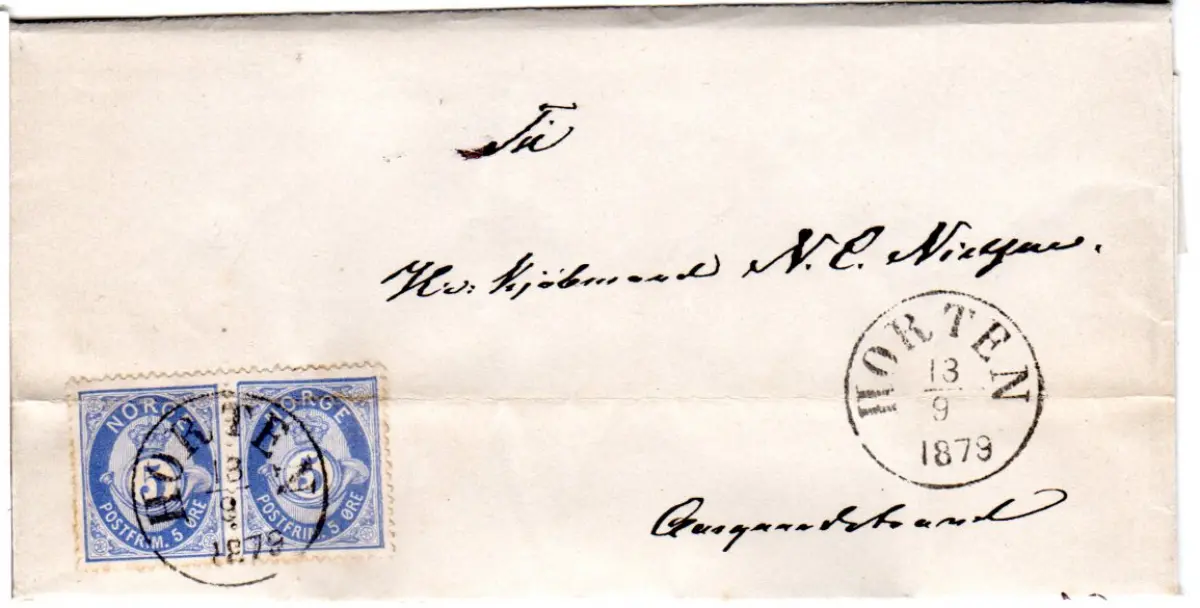 Til
Hr: Kjøbmand N. C. Nielsen.
HORTEN
13
9
1879
NORGE
5
POSTFRIM. 5 ØRE
NORGE
5
POSTFRIM. 5 ØRE
HORTEN
13
9
1879
Aasgaardstrand